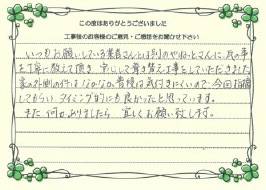 この度はありがとうございました
工事後のお客様のご意見・ご感想をお聞かせ下さい
いつもお願いしている業者さんとは別のやねっとさんに瓦の事
を丁寧に教えて頂き 安心して葺き替え工事をしていただきました
家の外側の件はなかなか普段は気付きにくいので今回指摘
してもらい タイミング的にも良かったと思っています。
また 何かありましたら 宜しくお願い致します。